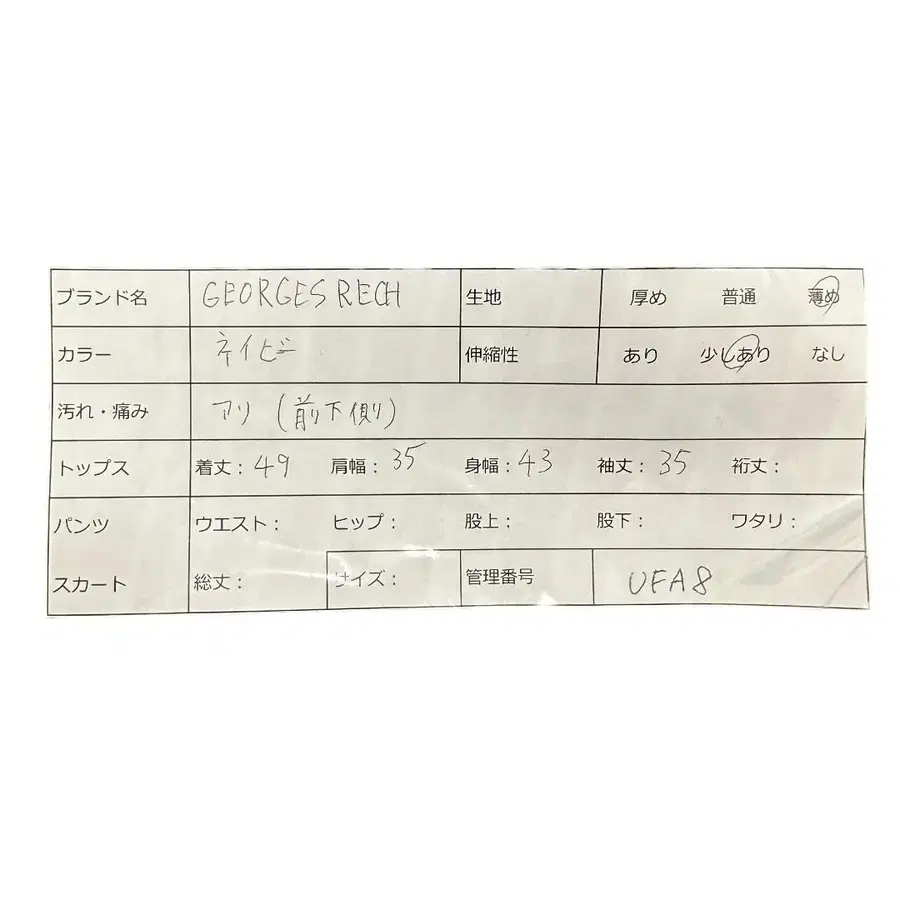 ブランド名 GEORGES RECH 生地 厚め 普通 薄め
カラー ネイビー 伸縮性 あり 少しあり なし
汚れ・痛み アリ (前下側)
トップス 着丈：49 肩幅：35 身幅：43 袖丈：35 裄丈：
パンツ ウエスト： ヒップ： 股上： 股下： ワタリ：
スカート 総丈： サイズ： 管理番号 UFA8